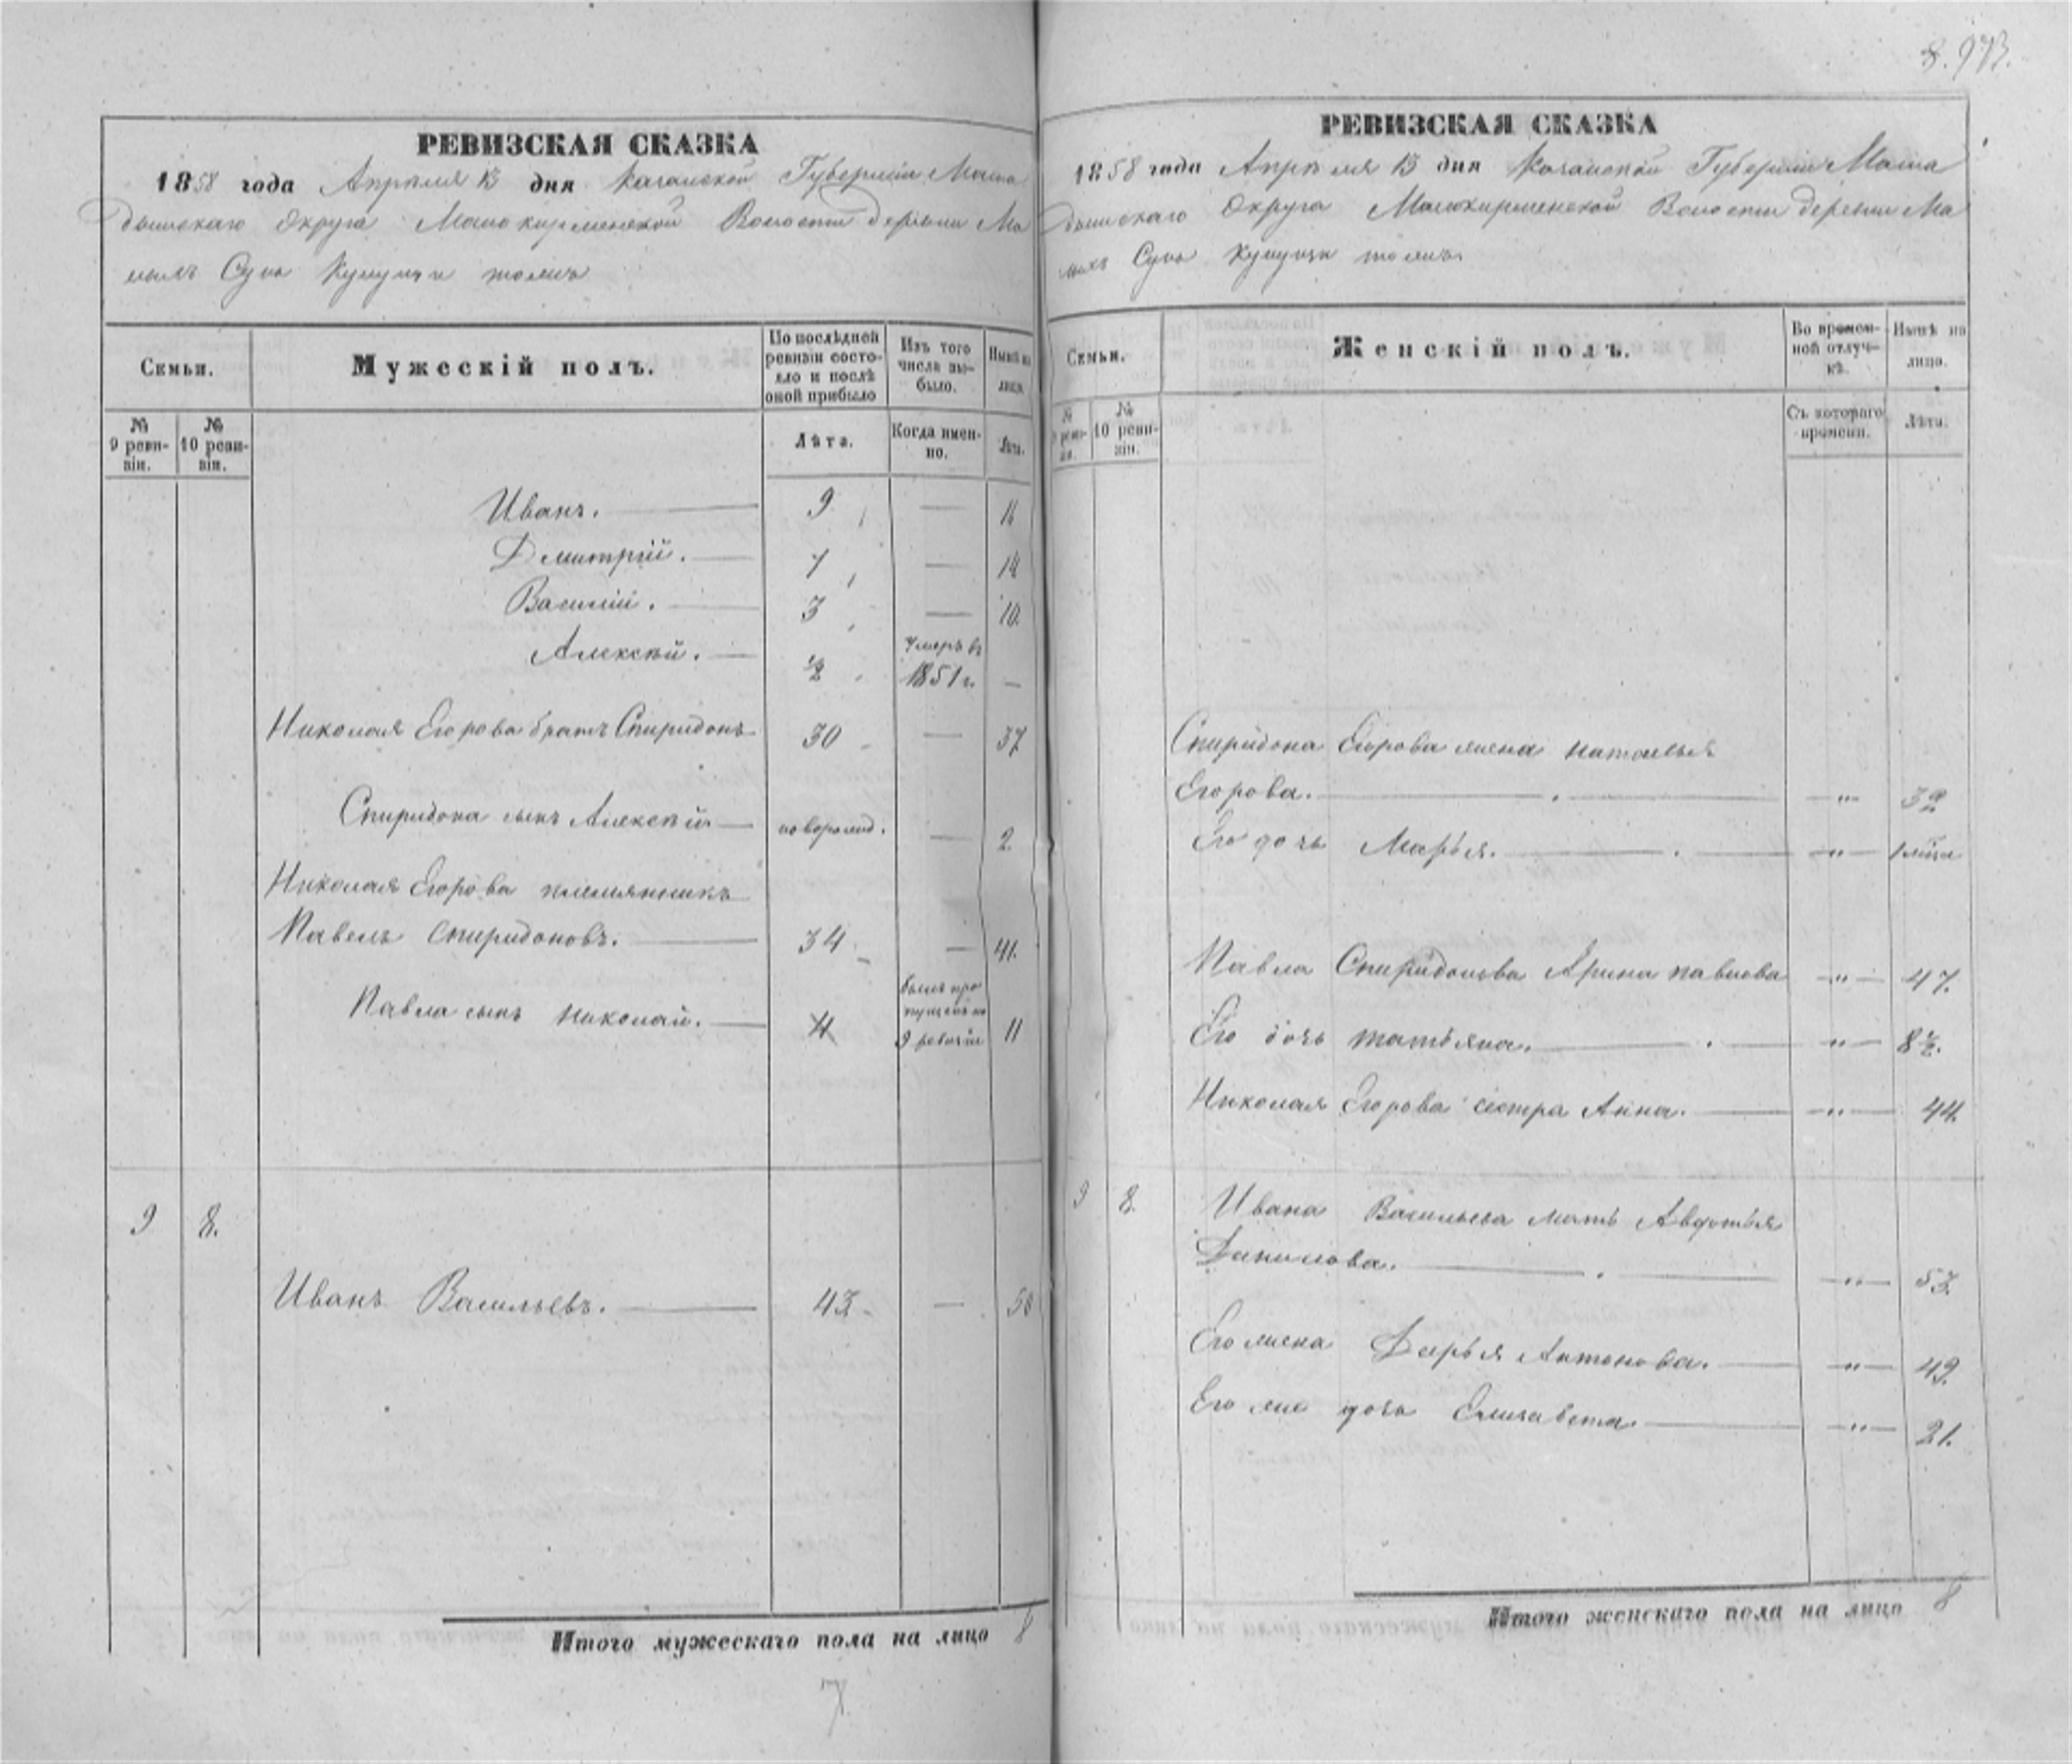 8. 973.
РЕВИЗСКАЯ СКАЗКА
1858 года Апрѣля 13 дня Казанской Губернiи Мама
дышскаго Округа Малокирменской Волости деревни Ма
лыхъ Сунь
Семьи.
Мужескiй полъ.
По послѣдней ревизiи состояло и послѣ оной прибыло
Изъ того числа выбыло.
Нынѣ на лицо.
№ 9 ревизiи.
№ 10 ревизiи.
Лѣта.
Когда именно.
Лѣта.
Иванъ. 9 — 16
Дмитрiй. 7 — 14
Василiй. 3 — 10.
Алексѣй. ½ Умеръ въ 1851 г. —
Николая Егорова братъ Спиридонъ 30 — 37
Спиридона сынъ Алексѣй новорожд. — 2.
Николая Егорова племянникъ
Павелъ Спиридоновъ. 34 — 41.
Павла сынъ Николай. 4 былъ пропущенъ по 9 ревизiи 11
9 8.
Иванъ Васильевъ. 43. — 50
Итого мужескаго пола на лицо 8
7
РЕВИЗСКАЯ СКАЗКА
1858 года Апрѣля 13 дня Казанской Губернiи Мама
дышскаго Округа Малокирменской Волости деревни Ма
лыхъ Сунь
Семьи.
Женскiй полъ.
Во временной отлучкѣ.
Нынѣ на лицо.
№ 9 ревизiи.
№ 10 ревизiи.
Съ котораго времени.
Лѣта.
Спиридона Егорова жена Наталья
Егорова. — " — 39
Его дочь Марья. — " —
Павла Спиридонова Арина Павлова — " — 47.
Его дочь Татьяна. — " — 8½.
Николая Егорова сестра Анна. — " — 44.
9 8. Ивана Васильева мать Авдотья
Данилова. — " — 53.
Его жена Дарья Антонова. — " — 49.
Его же дочь Елизавета. — " — 21.
Итого женскаго пола на лицо 8